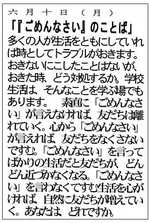 六月十日（月）
「『ごめんなさい』のことば」
多くの人が生活をともにしていれ
ば時としてトラブルがおきます。
おきないにこしたことはないが、
おきた時、どう対処するか。学校
生活は、そんなことを学ぶ場でも
あります。　素直に「ごめんなさい」
が言えなければ、友だちは離
れていく。心から「ごめんなさい」
が言えれば、友だちをなくさない
ですむ。「ごめんなさい」を言って
ばかりの生活だと友だちが、どん
どん近づかなくなる。「ごめんなさ
い」を言わなくてすむ生活を心が
ければ、自然に友だちが増えてい
く。あなたは、どれですか。